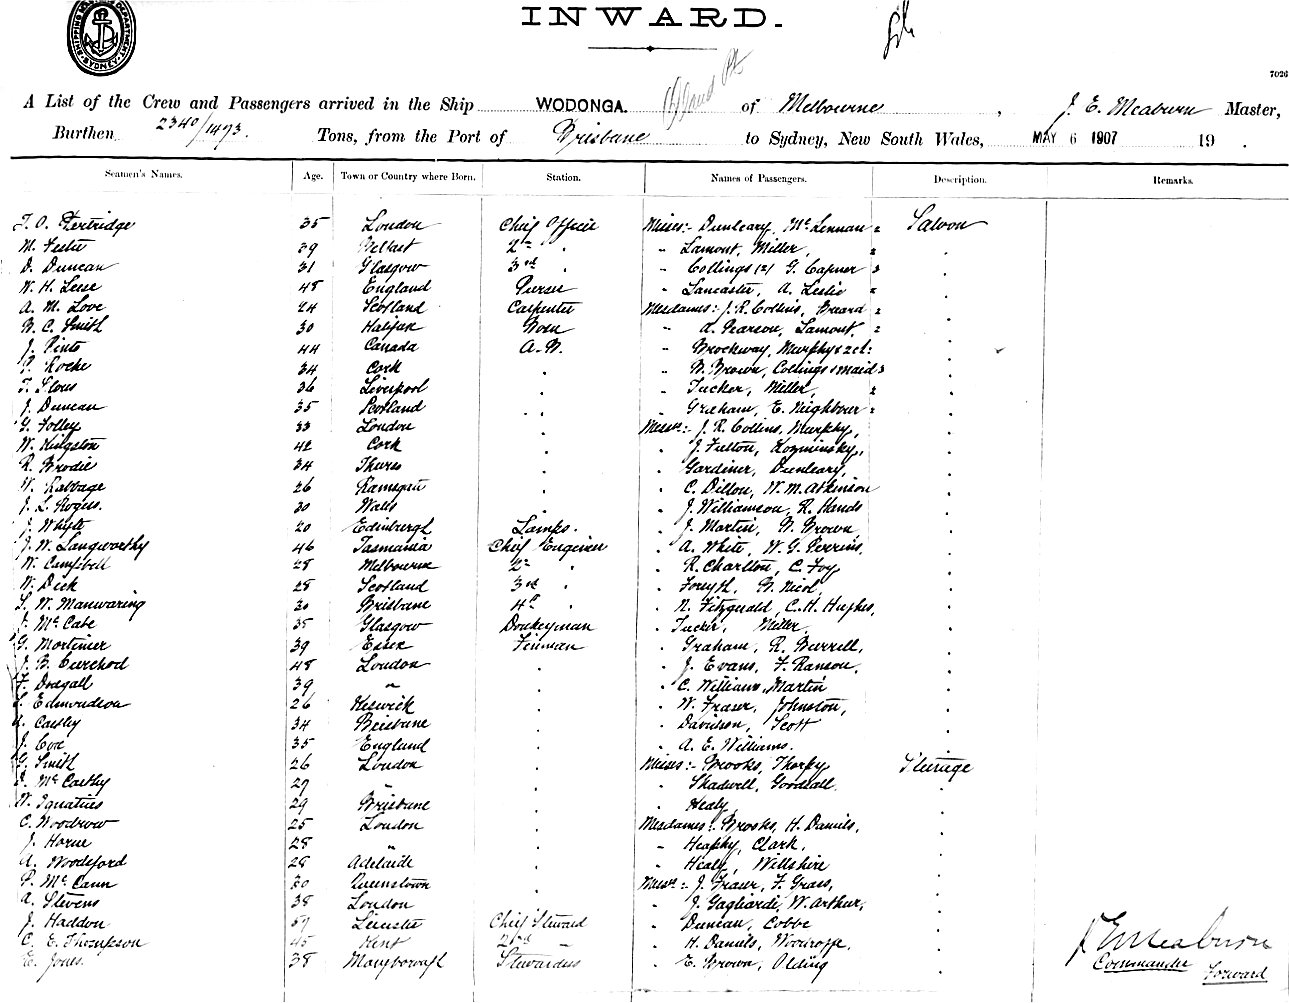 SHIPPING MASTER'S DEPARTMENT SYDNEY
INWARD.
7026
A List of the Crew and Passengers arrived in the Ship WODONGA. of Melbourne, J. E. Meaburn Master,
Burthen 2340/1473. Tons, from the Port of Brisbane to Sydney, New South Wales, MAY 6 1907 19 .
Seamen's Names. Age. Town or Country where Born. Station. Names of Passengers. Description. Remarks.
35 London Chief Officer Misses:- Dunleary, McLennan 2 Saloon
M. 39 Belfast 2nd " " Lamont, Miller, 2 "
D. Duncan 31 Glasgow 3rd " " Collings (2) G. Capner 3 "
W. H. Leese 48 England Purser " Lancaster, A. Leslie 2 "
A. M. Love 24 Scotland Carpenter Mesdames:- J. R. Collins, 2 "
W. C. Smith 30 Halifax Bosn " A. Pearson, Lamont, 2 "
J. Pinto 44 Canada A.B. " Brockway, Murphy & 2 ch: "
Roche 34 Cork " " B. Brown, Collings & maid 3 "
T. 36 Liverpool " " Tucker, Miller, 2 "
J. Duncan 35 Scotland " " Graham, E. Neighbour 2 "
G. Folley 33 London " Messrs:- J. R. Collins, Murphy, "
W. Kingston 42 Cork " " J. Fulton, Kozminsky, "
R. Brodie 34 Thurso " " Gardiner, Dunleary, "
W. Rabbage 26 Ramsgate " " C. Dillon, W. M. Atkinson "
J. L. Rogers. 30 Wales " " J. Williamson, R. Hands "
J. Whyte 20 Edinbergh Lamps. " J. Martin, B. Brown "
J. W. Langworthy 46 Tasmania Chief Engineer " A. White, W. G. Perrins, "
W. Campbell 28 Melbourne 2nd " " R. Charlton, C. Foy "
W. Dick 28 Scotland 3rd " " Forsyth, B. Nicol, "
S. W. Manwaring 30 Brisbane 4th " " N. Fitzgerald, C. H. Hughes, "
McCabe 35 Glasgow Donkeyman " Tucker, Miller, "
G. Mortimer 39 Essex Fireman " Graham, R. Burrell, "
J. B. Curchod 48 London " " J. Evans, F. Ranson, "
F. 39 " " " C. Williams, Martin "
Edmondson 26 Keswick " " W. Fraser, Johnston, "
34 Brisbane " " Davidson, Scott "
J. Cox 35 England " " A. E. Williams. "
G. Smith 26 London " Misses:- Brooks, Thorpy Steerage
McCarthy 29 " " " Shadwell, Goodsall "
W. Ignatius 29 Brisbane " " Healy, "
C. Woodrow 25 London " Mesdames:- Brooks, H. Daniels, "
J. Horne 28 " " " Heaphy, Clark, "
A. Woodford 28 Adelaide " " Healy, Willshire "
P. McCann 30 Queenstown " Messrs:- J. Fraser, F. Grass, "
A. Stevens 38 London " " J. Gagliardi, W. Arthur, "
J. Haddon 59 Leicester Chief Steward " Duncan, Cobbe "
C. E. Thompson 45 Kent 2nd " " H. Daniels, Woodroffe, "
E. Jones. 38 Maryborough Stewardess " E. Brown, Olding "
J E Meaburn
Commander
Forward